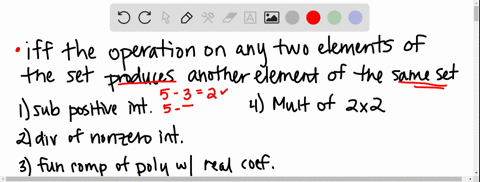 • iff the operation on any two elements of
the set produces another element of the same set
5 - 3 = 2 ✓
1) sub positive int. 5 - __
4) Mult of 2x2
2) div of nonzero int.
3) fun comp of poly w/ real coef.